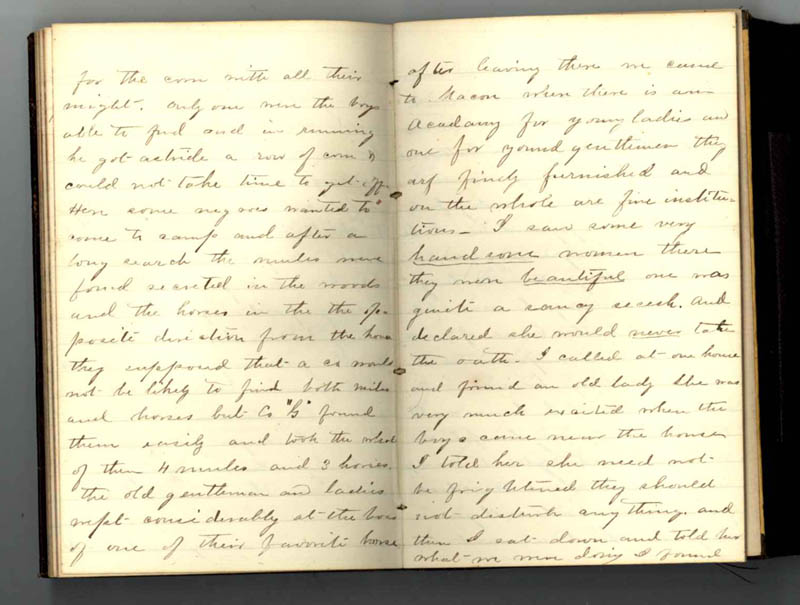 for the corn with all their
might. only one were the boys
able to find and in running
he got astride a row of corn &
could not take time to get off.
Here some negroes wanted to
come to camp and after a
long search the mules were
found secreted in the woods
and the horses in the the op-
posite direction from the house
they supposed that a co would
not be likely to find both mules
and horses but Co "G" found
them easily and took the whole
of them 4 mules and 3 horses.
the old gentleman and ladies
wept considerably at the loss
of one of their favorite horse
after leaving there we came
to Macon where there is an
Academy for young ladies and
one for young gentlemen they
are finely furnished and
on the whole are fine institu-
tions — I saw some very
handsome women there
they were beautiful one was
quite a saucy secesh. and
declared she would never take
the oath — I called at one house
and found an old lady she was
very much excited when the
boys came near the house
I told her she need not
be frightened they should
not disturb anything. and
then I sat down and told her
what we were doing I found